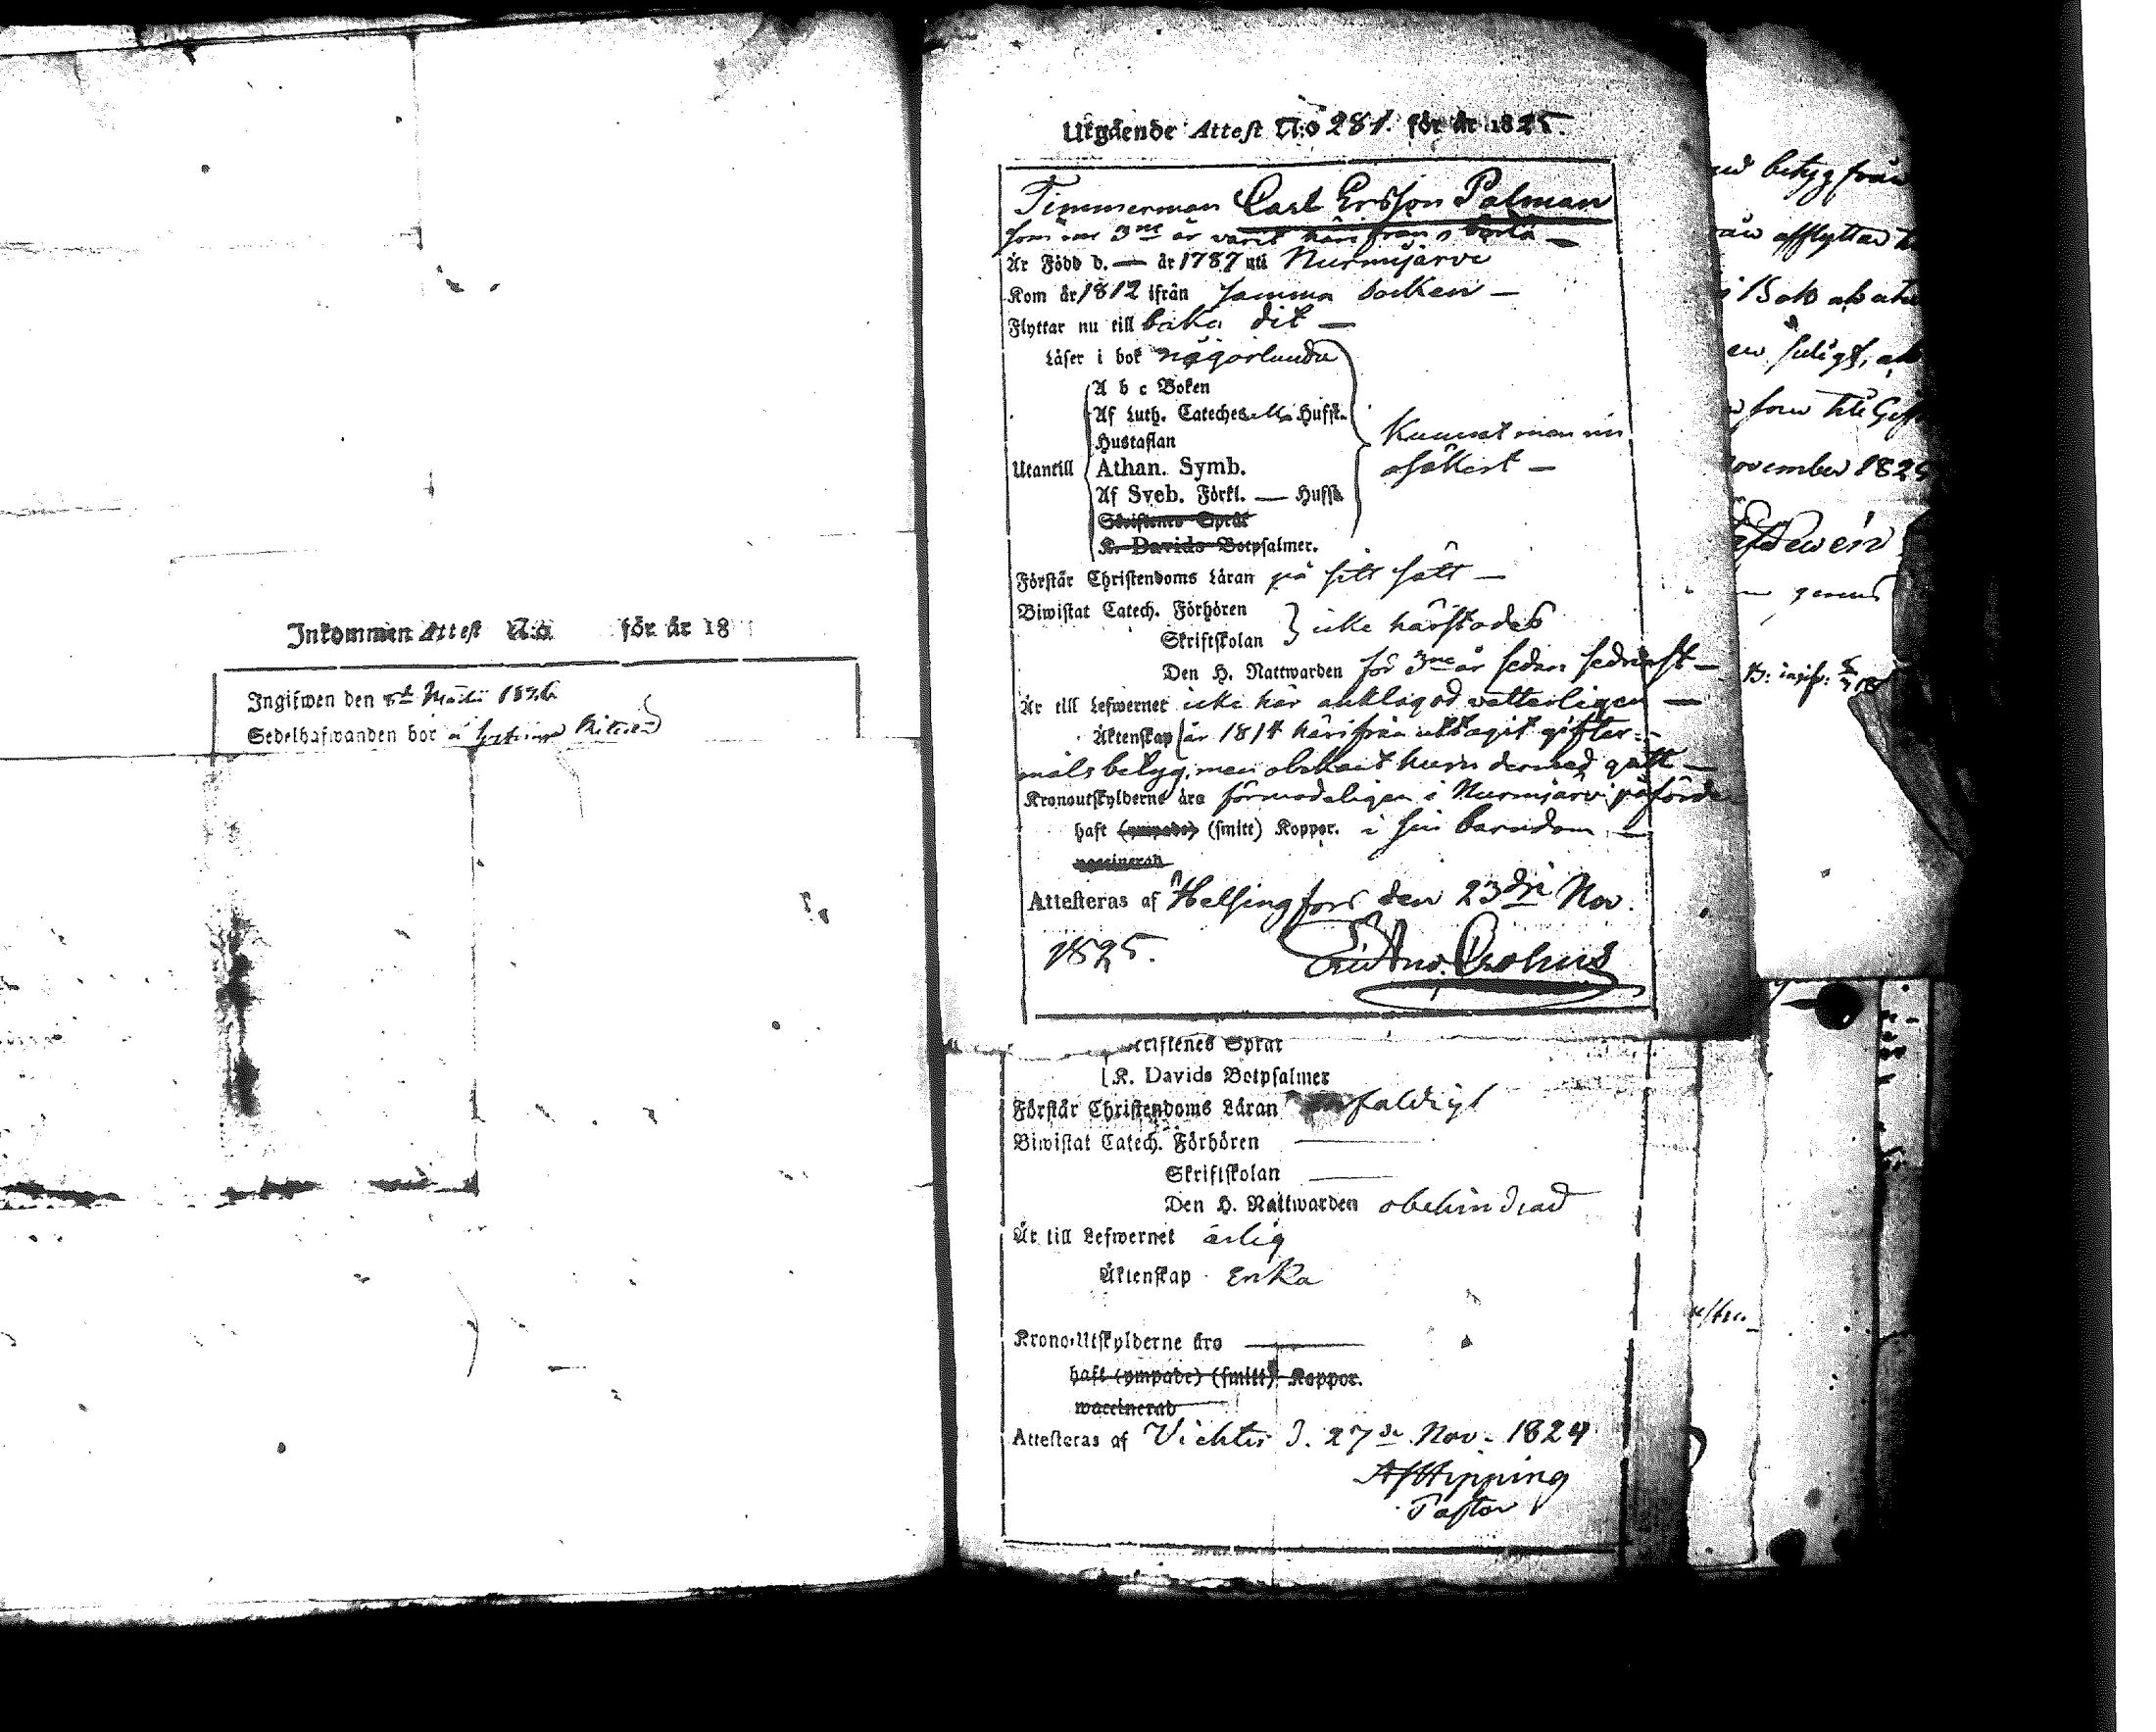 Inkommen Attest N:o för år 18
Ingifwen den 8de Martii 1826
Sedelhafwanden bor å
Utgående Attest N:o 281. för år 1825.
Timmerman Carl Ersson Palman
som 3ne år varit härifrån borta —
Är Född d. — år 1787 uti Nurmijärvi
Kom år 1812 ifrån samma socken —
Flyttar nu till baka dit —
Läser i bok någorlunda
Utantill
A b c Boken
Af Luth. Cateches Hufst.
Hustaflan
Athan. Symb.
Af Sveb. Förkl. — Hufst.
Skriftenes Språk
K. Davids Botpsalmer.
Kunnat men nu
osäkert —
Förstår Christendoms Läran på sitt sätt —
Biwistat Catech. Förhören
Skriftskolan
icke härstädes
Den H. Nattwarden för 3ne år sedan sednast —
Är till Lefwernet icke här anklagad vetterligen —
Äktenskap år 1814 härifrån uttagit gifter-
måls betyg, men obekant huru dermed gått —
Kronoutskylderne äro förmodeligen i Nurmijärvi påförde
haft (ympade) (smitt) Koppor. i sin barndom —
vaccinerad
Attesteras af Helsingfors den 23dje Nov.
1825.
Crohns
Skriftenes Språk
K. Davids Botpsalmer
Förstår Christendoms Läran enfaldigt
Biwistat Catech. Förhören —
Skriftskolan —
Den H. Nattwarden obehindrad
Är till Lefwernet ärlig
Äktenskap Enka
Krono-Utskylderne äro —
haft (ympade) (smitt) Koppor.
waccinerad
Attesteras af Vichtis d. 27de Nov. 1824
AfHipping
Pastor
betyg från
afflyttad
November 182